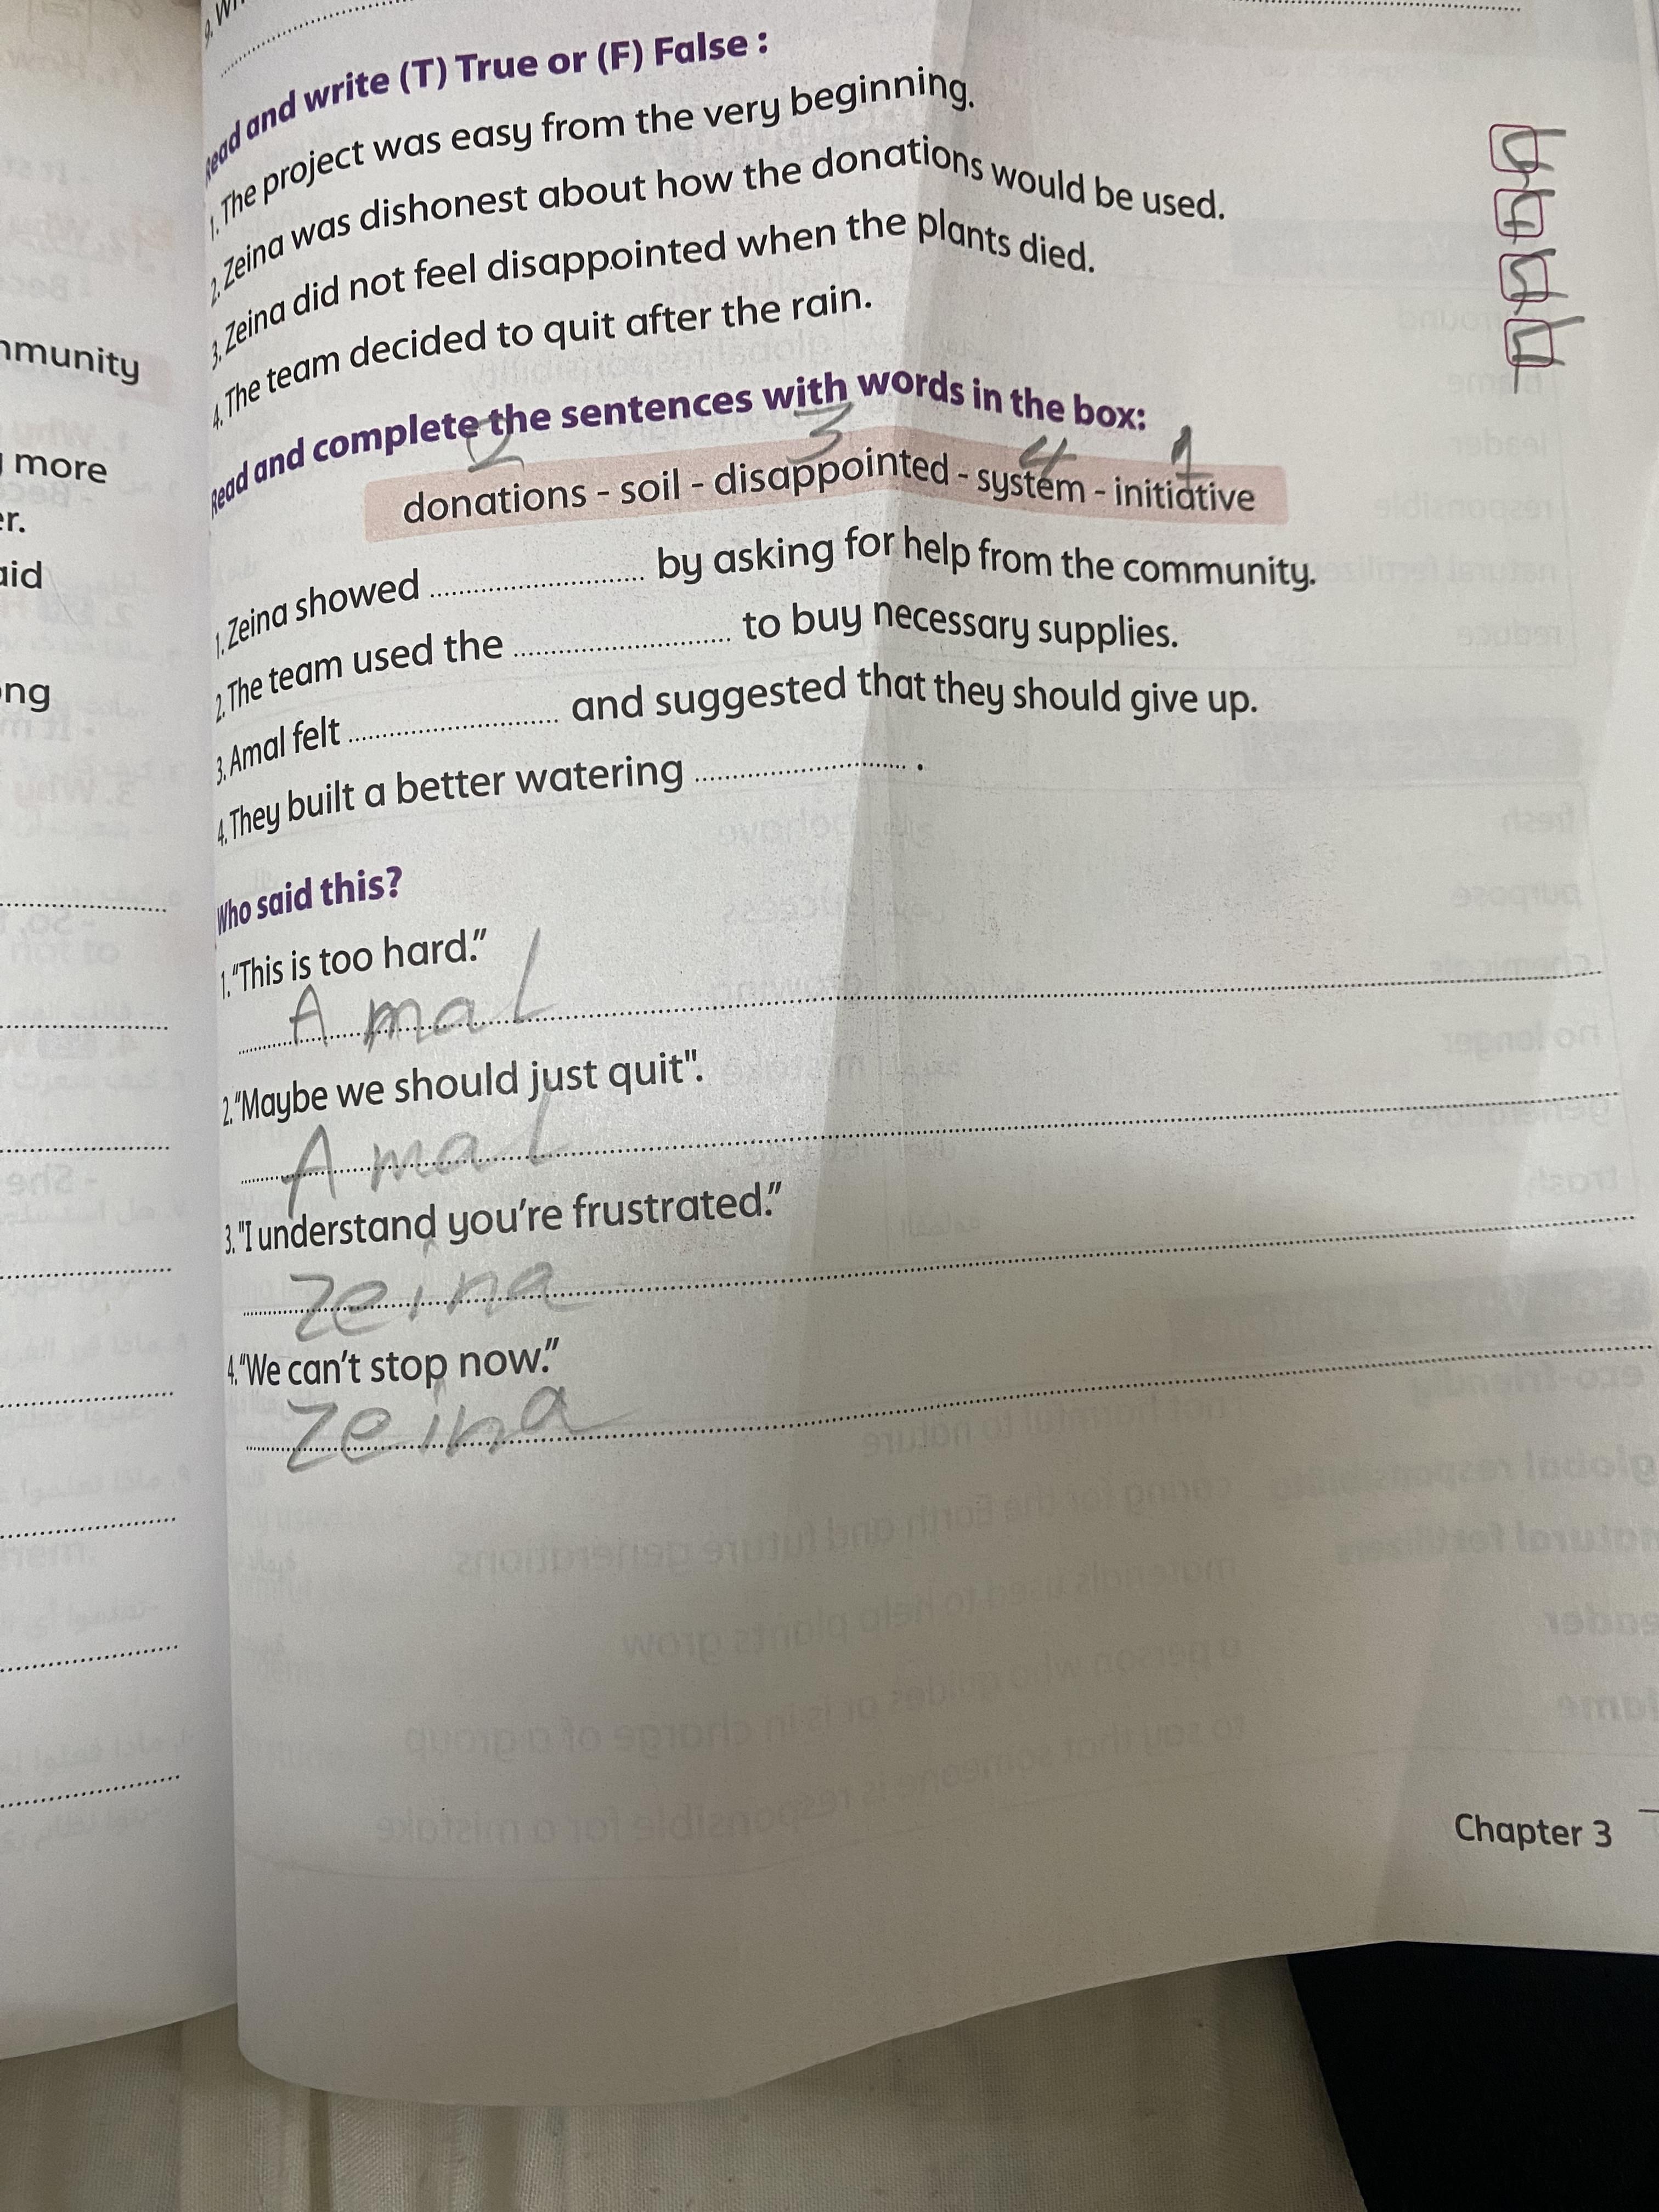 mmunity
more
er.
aid
ong
9. W
Read and write (T) True or (F) False :
1. The project was easy from the very beginning.
F
2. Zeina was dishonest about how the donations would be used.
F
3. Zeina did not feel disappointed when the plants died.
F
4. The team decided to quit after the rain.
F
Read and complete the sentences with words in the box:
2 3 4 1
donations - soil - disappointed - system - initiative
1. Zeina showed .......................... by asking for help from the community.
2. The team used the .......................... to buy necessary supplies.
3. Amal felt .......................... and suggested that they should give up.
4. They built a better watering .......................... .
Who said this?
1. "This is too hard."
Amal
2. "Maybe we should just quit".
Amal
3. "I understand you're frustrated."
Zeina
4. "We can't stop now."
Zeina
Chapter 3